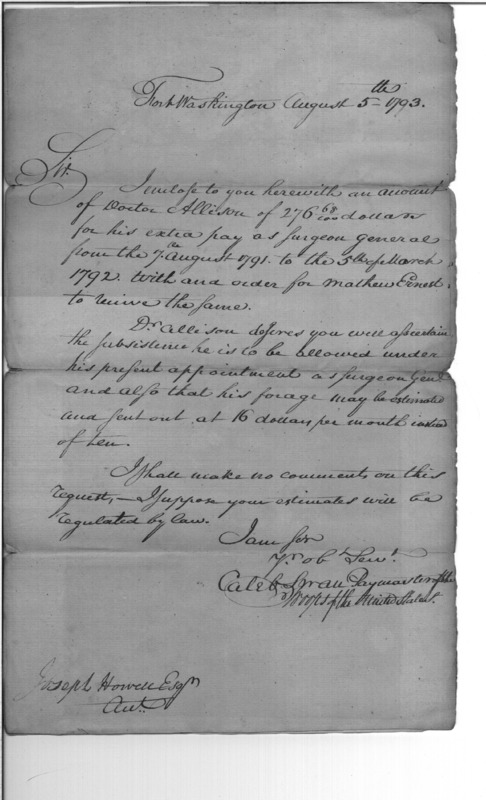 Fort Washington August 5th 1793.
Sir.
I enclose to you herewith an amount
of Doctor Allison of 276 68/100 dollars
for his extra pay as surgeon general
from the 7th August 1791. to the 5th of March
1792. With and order for Mathew Ernest
to receive the same.
Dr Allison desires you will ascertain
the subsistence he is to be allowed under
his present appointment as surgeon Genl
and also that his forage may be estimated
and sent out at 16 dollars per month instead
of ten.
I shall make no comments on this
request, — I suppose your estimates will be
regulated by law.
I am Sir
Yr obt Servt
Caleb Swan Paymaster of the
Troops of the United States.
Joseph Howell Esqr
Acct.